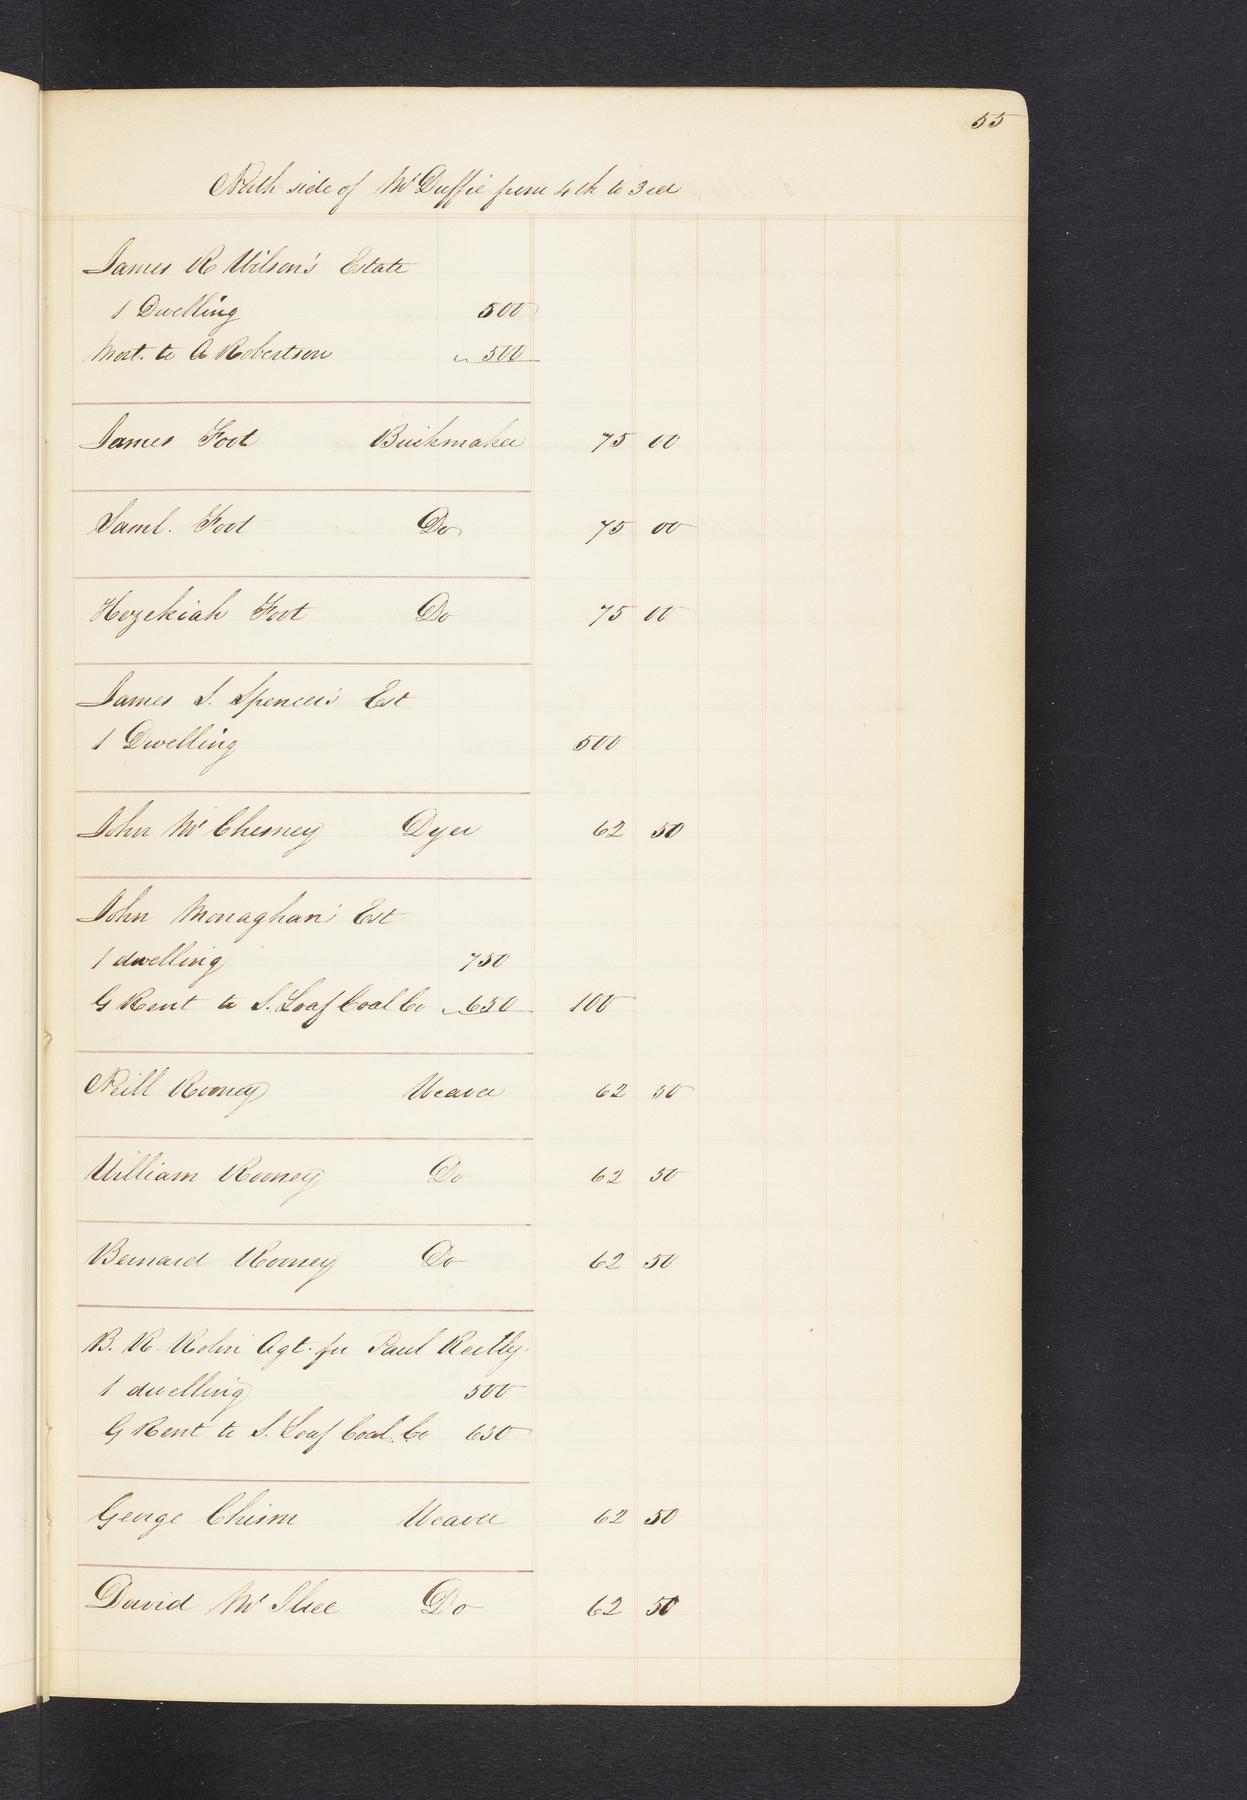 55
North side of Mc Duffie from 4th to 3rd
James R Wilson's Estate
1 Dwelling 500
Mort. to A Robertson 500
James Foot Brickmaker 75 00
Saml. Foot Do 75 00
Hezekiah Foot Do 75 00
James S. Spencer's Est
1 Dwelling 500
John Mc Chesney Dyer 62 50
John Monaghan's Est
1 dwelling 750
G Rent to S. Loaf Coal Co 650 100
Neill Rooney Weaver 62 50
William Rooney Do 62 50
Bernard Rooney Do 62 50
B. R. Agt. for Paul Reilly.
1 dwelling 500
G Rent to S. Loaf Coal Co 650
George Chism Weaver 62 50
David Mc Do 62 50